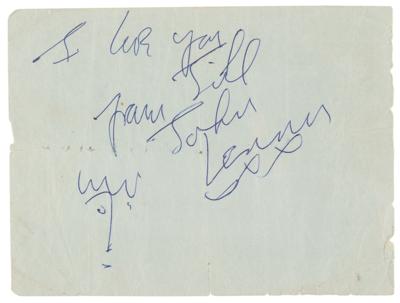 I love you
Jill
from John
Lennon
xx